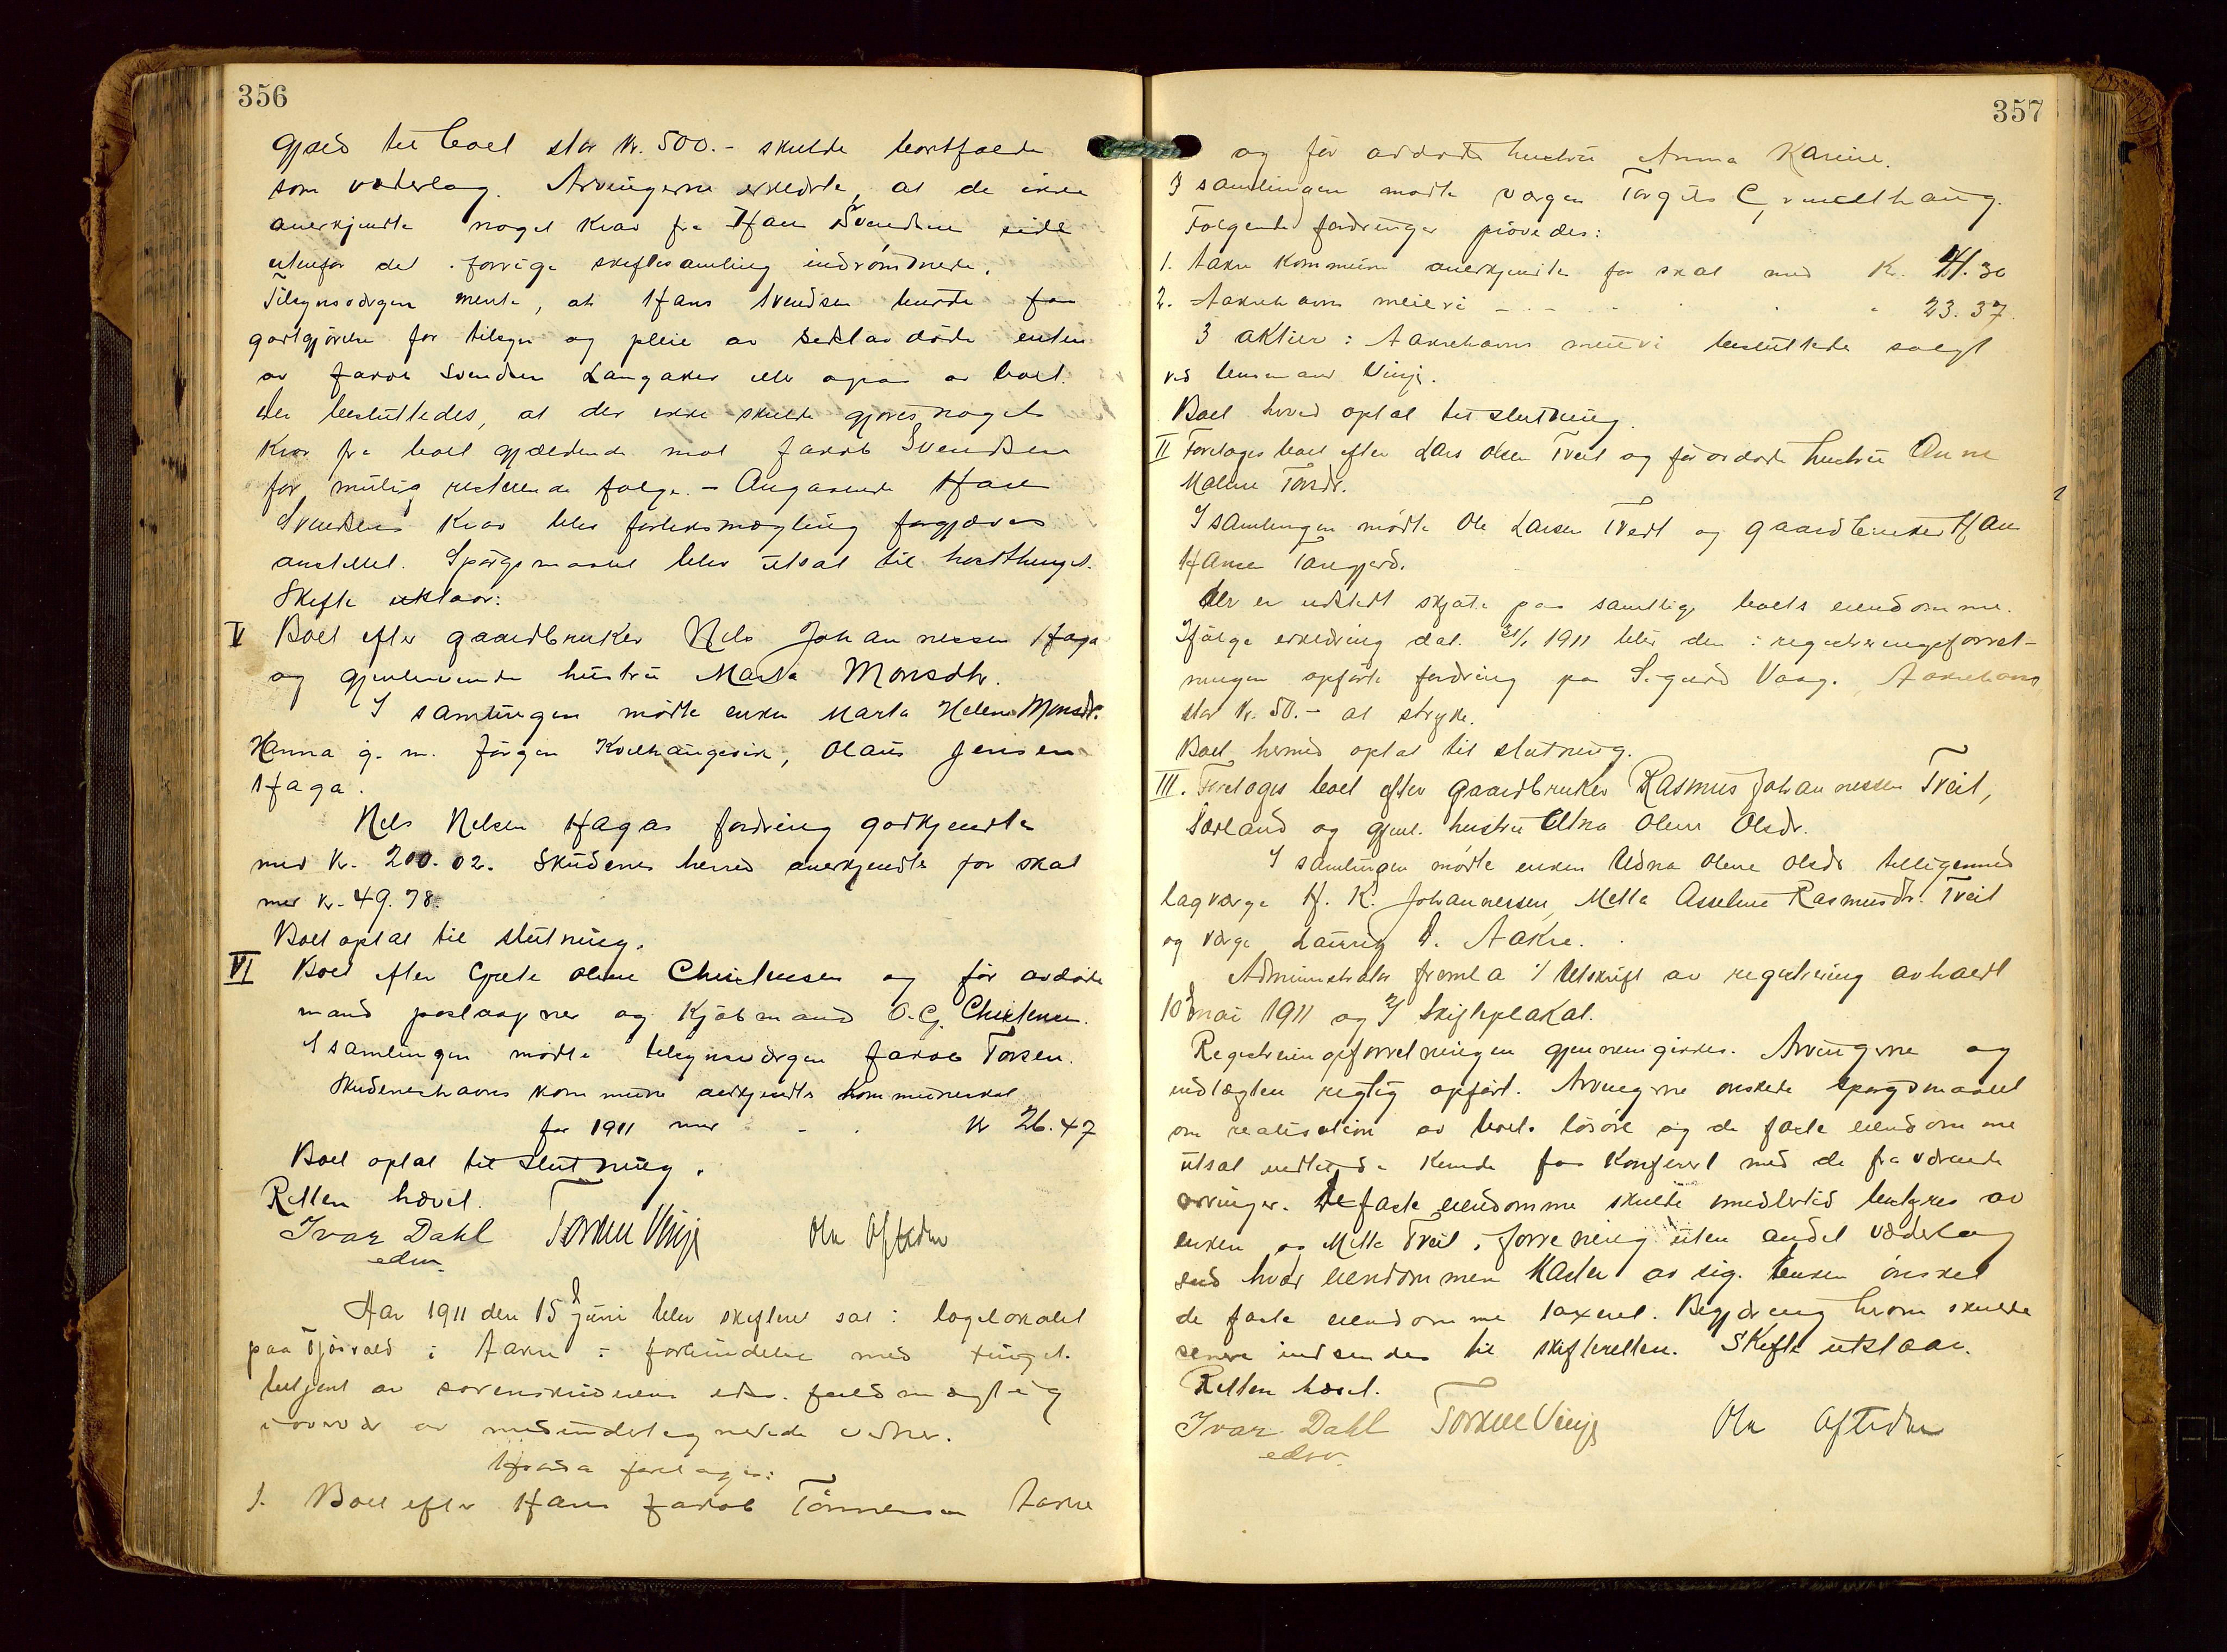 356
gjæld til boet stor kr. 500.- skulde bortfalde
som vederlag. Arvingerne erklærte, at de ikke
anerkjendte noget krav fra Hans Svendsens side
utenfor det i forrige skiftesamling indrømmede.
Tilsynsværgen mente, at Hans Svendsen burde faa
godtgjørelse for tilsyn og pleie av avdøde enten
av Jakob Svendsen Langaker eller ogsaa av boet.
Der besluttedes, at der ikke skulde gjøres noget
krav fra boet gjældende mot Jakob Svendsen
for mulig resterende følge. - Angaaende Hans
Svendsens krav blev forliksmægling forgjæves
anstillet. Spørgsmaalet blev utsat til høstthinget.
Skifte utstaar.
V Boet efter gaardbruker Nils Johannessen Haga
og gjenlevende hustru Marta Monsdtr.
I samlingen møtte enken Marta Helene Monsdtr.
Hanna g. m. Jørgen Kvilhaugsvik, Olaus Jensen
Haga.
Nils Nilsen Hagas fordring godkjendtes
med kr. 200.02. Skudenes herred anerkjendtes for skat
med kr. 49.78.
Boet optat til slutning.
VI Boet efter Gjete Oline Christensen og før avdøde
mand postaapner og kjøbmand O. G. Christensen.
I samlingen møtte tilsynsværgen Jakob Torsen.
Skudeneshavns kommune anerkjendtes kommuneskat
for 1911 med - . kr 26.47
Boet optat til slutning.
Retten hævet.
Ivar Dahl Torkell Vinje Ole Aftedm
edsv.
Aar 1911 den 15d juni blev skifteret sat i tingslokalet
paa Tjøsvold i Aakre i forbindelse med tinget
betjent av sorenskriverens edsv. fuldmægtig
i overvær av medundertegnede vidner.
Hvorda foretages:
1. Boet efter Hans Jakob Tønnessen Aakre
357
og før avdøde hustru Anna Karine.
I samlingen møtte værgen Torgils Grindthaug.
Følgende fordringer prøvedes:
1. Aakre kommune anerkjendtes for skat med Kr. 41.30
2. Aakrehavn meieri - . - . . " 23.37.
3 aktier i Aakrehavns meieri besluttedes solgt
ved lensmand Vinje.
Boet hved optat til slutning.
II Foretoges boet efter Lars Olsen Tveit og før avdøde hustru Anne
Malene Torsdr.
I samlingen møtte Ole Larsen Tveit og gaardbruker Hans
Hansen Tangjerd.
Der er utstedt skjøte paa samtlige boets eiendomme.
Ifølge erklæring dat. 31/1 1911 blir den i registreringsforret-
ningen opførte fordring paa Sigurd Vaag, Aakrehavn
stor kr. 50.- at stryke.
Boet hermed optat til slutning.
III. Foretoges boet efter gaardbruker Rasmus Johannessen Tveit,
Sørland og gjenl. hustru Edna Oline Olsdr.
I samlingen møtte enken Edna Oline Olsdr tilligemed
lagværge H. K. Johannessen, Mette Asseline Rasmusdtr. Tveit
og værge Lauritz D. Aakre.
Administrator fremla 1/ Utskrift av registrering avholdt
10d mai 1911 og 2/ Skifteplakat.
Registreringsforretningen gjennemgikkes. Arvingerne og
indtægten rigtig opført. Arvingerne ønskede spørgsmaalet
om realisation av boets løsøre og de faste eiendomme
utsat indtil de kunde faa konferert med de fraværende
arvinger. De faste eiendomme skulde imidlertid bestyres av
enken og Mette Tveit i forening uten andet vederlag
end hvad eiendommen kaster av sig. Enken ønsket
de faste eiendomme taxert. Begjæring herom skulde
senere indsendes til skifteretten. Skifte utstaar.
Retten hævet.
Ivar Dahl Torkell Vinje Ole Aftedm
edsv.